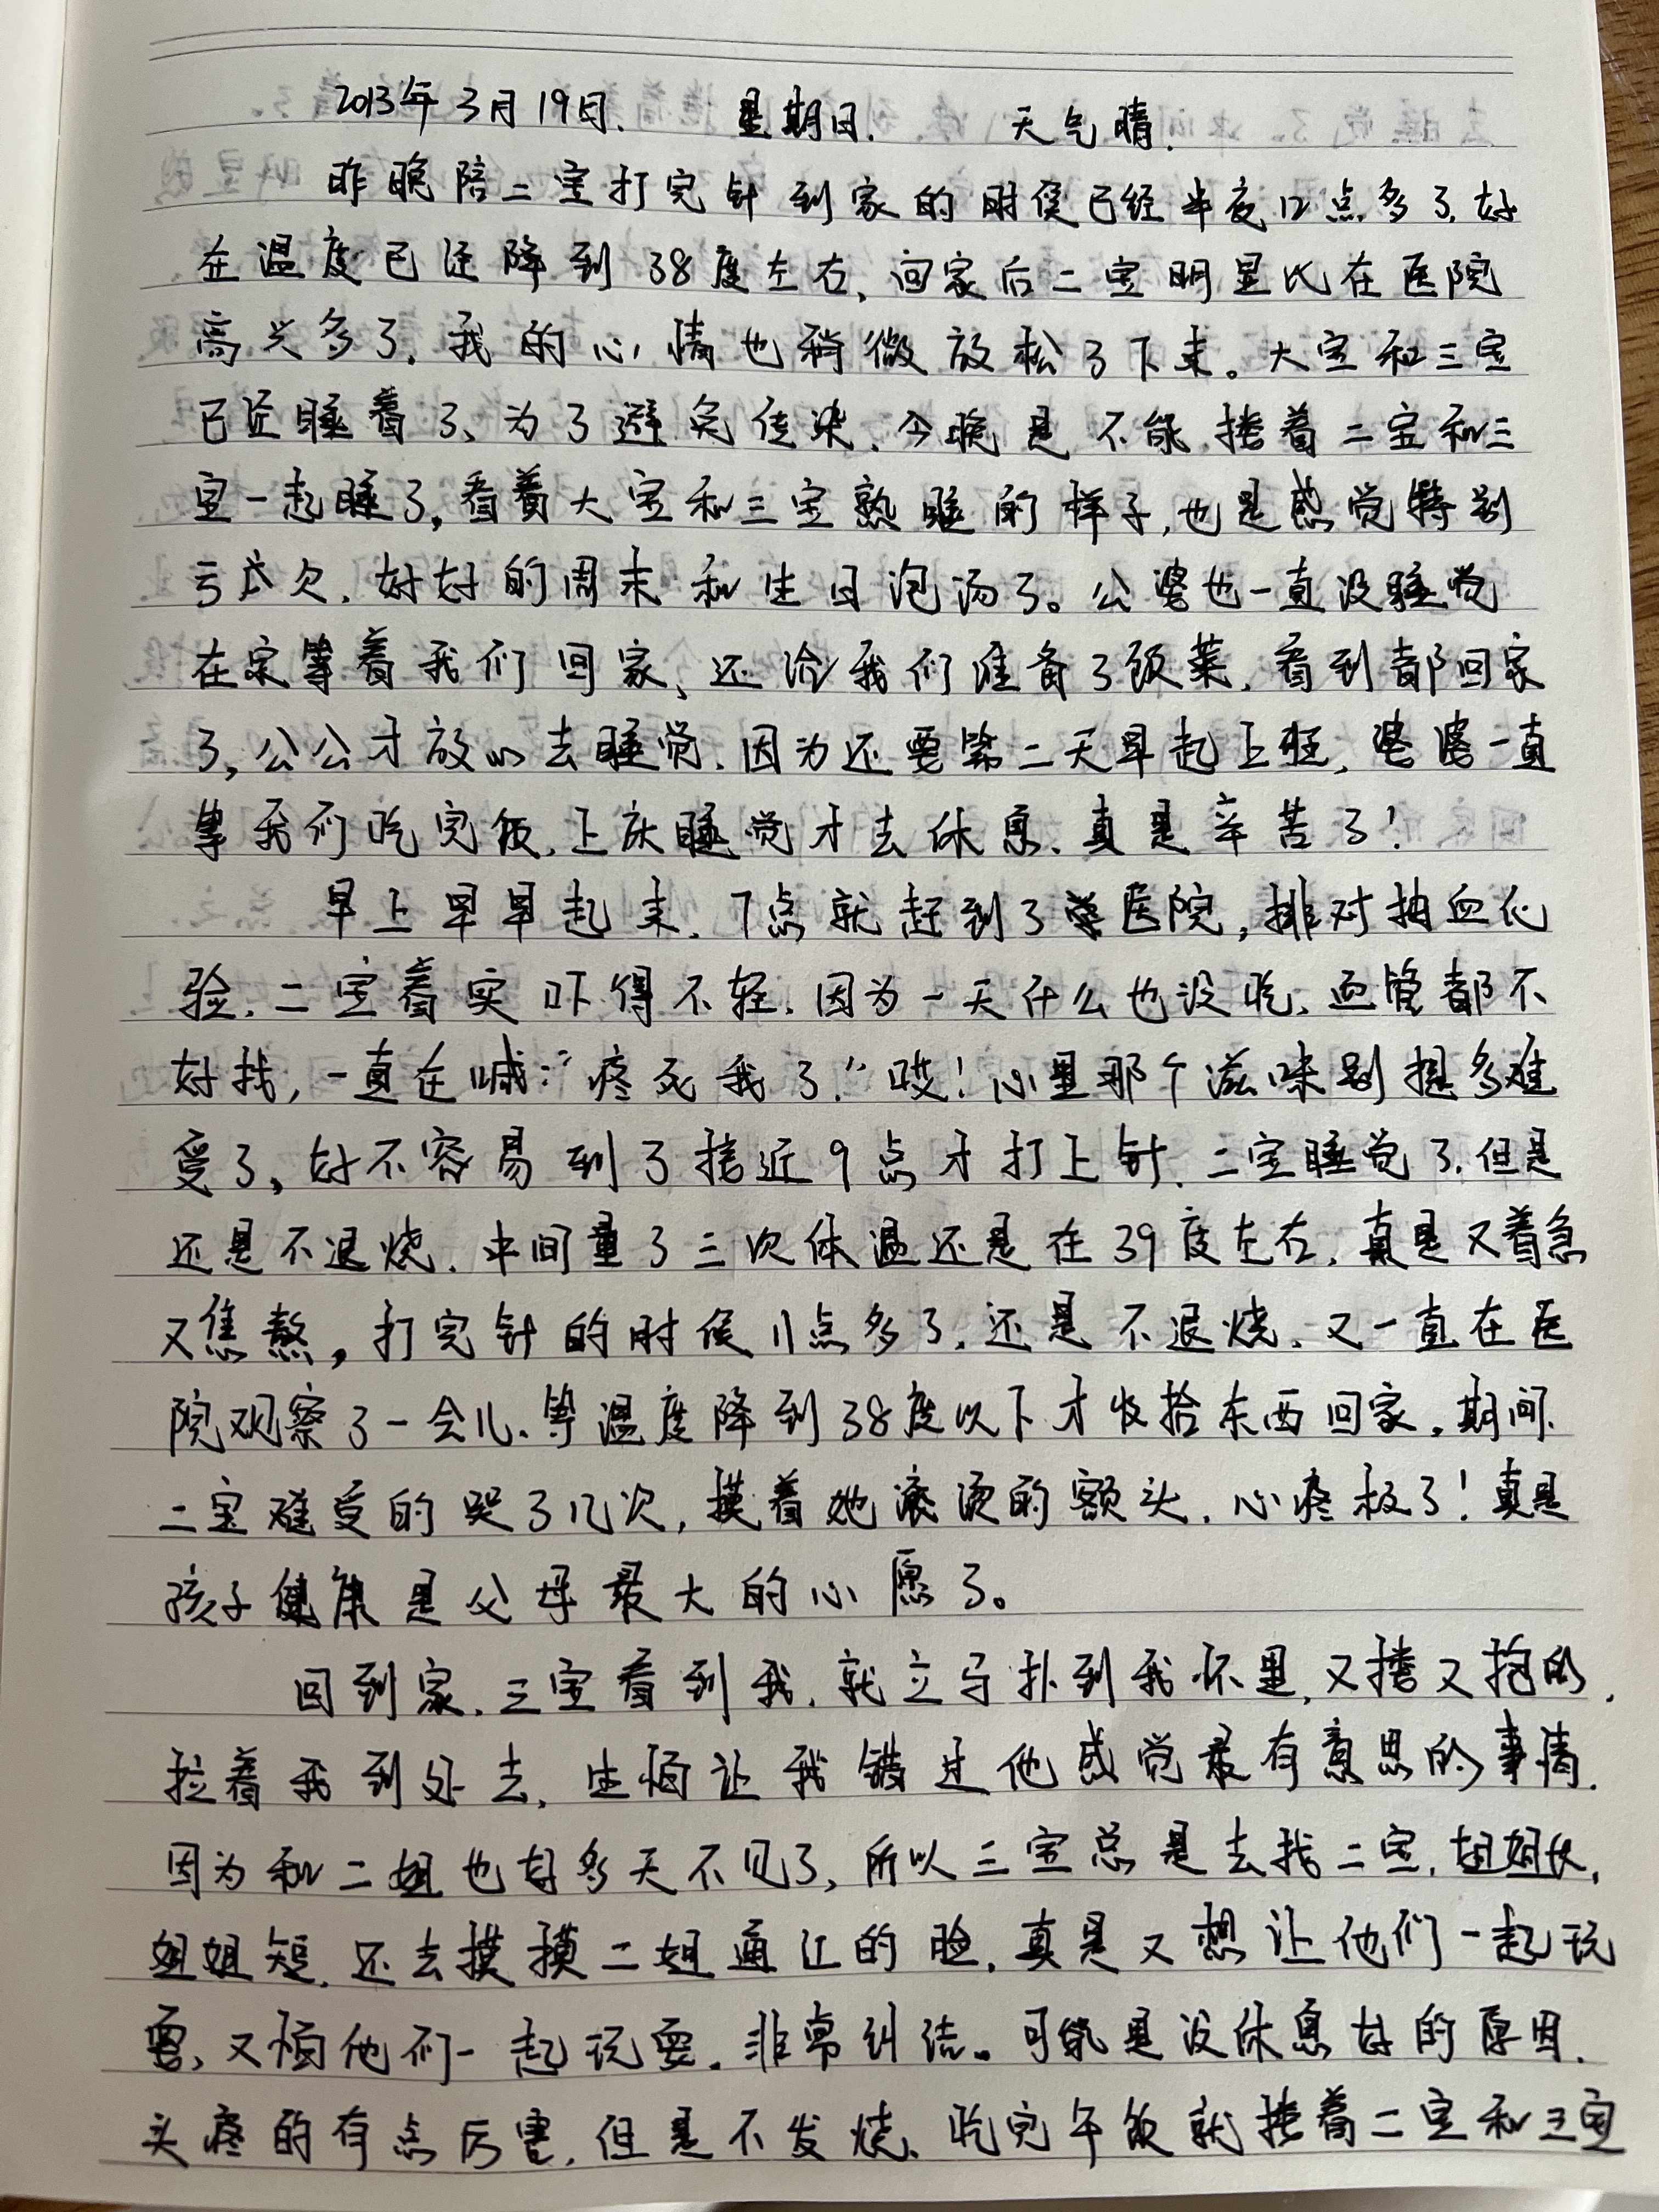 2013年3月19日. 星期日. 天气晴.
昨晚陪二宝打完针到家的时候已经半夜12点多了,好
在温度已经降到38度左右,回家后二宝明显比在医院
高兴多了,我的心情也稍微放松了下来。大宝和三宝
已经睡着了、为了避免传染,今晚是不能搂着二宝和三
宝一起睡了,看着大宝和三宝熟睡的样子,也是感觉特别
亏欠,好好的周末和生日泡汤了。公婆也一直没睡觉
在家等着我们回家、还给我们准备了饭菜,看到都回家
了,公公才放心去睡觉,因为还要第二天早起上班,婆婆一直
等我们吃完饭,上床睡觉才去休息、真是辛苦了!
早上早早起来,7点就赶到了医院,排对抽血化
验,二宝着实吓得不轻,因为一天什么也没吃,血管都不
好找,一直在喊:“疼死我了!”哎!心里那个滋味别提多难
受了,好不容易到了接近9点才打上针,二宝睡觉了,但是
还是不退烧,中间量了三次体温还是在39度左右,真是又着急
又焦熬,打完针的时候11点多了,还是不退烧,又一直在医
院观察了一会儿、等温度降到38度以下才收拾东西回家,期间
二宝难受的哭了几次,摸着她滚烫的额头,心疼极了!真是
孩子健康是父母最大的心愿了。
回到家,三宝看到我,就立马扑到我怀里,又搂又抱的,
拉着我到处去,生怕让我错过他感觉最有意思的事情.
因为和二姐也好多天不见了,所以三宝总是去找二宝,姐姐长,
姐姐短,还去摸摸二姐通红的脸,真是又想让他们一起玩
耍,又怕他们一起玩耍,非常纠结。可能是没休息好的原因.
头疼的有点厉害,但是不发烧、吃完午饭就搂着二宝和三宝